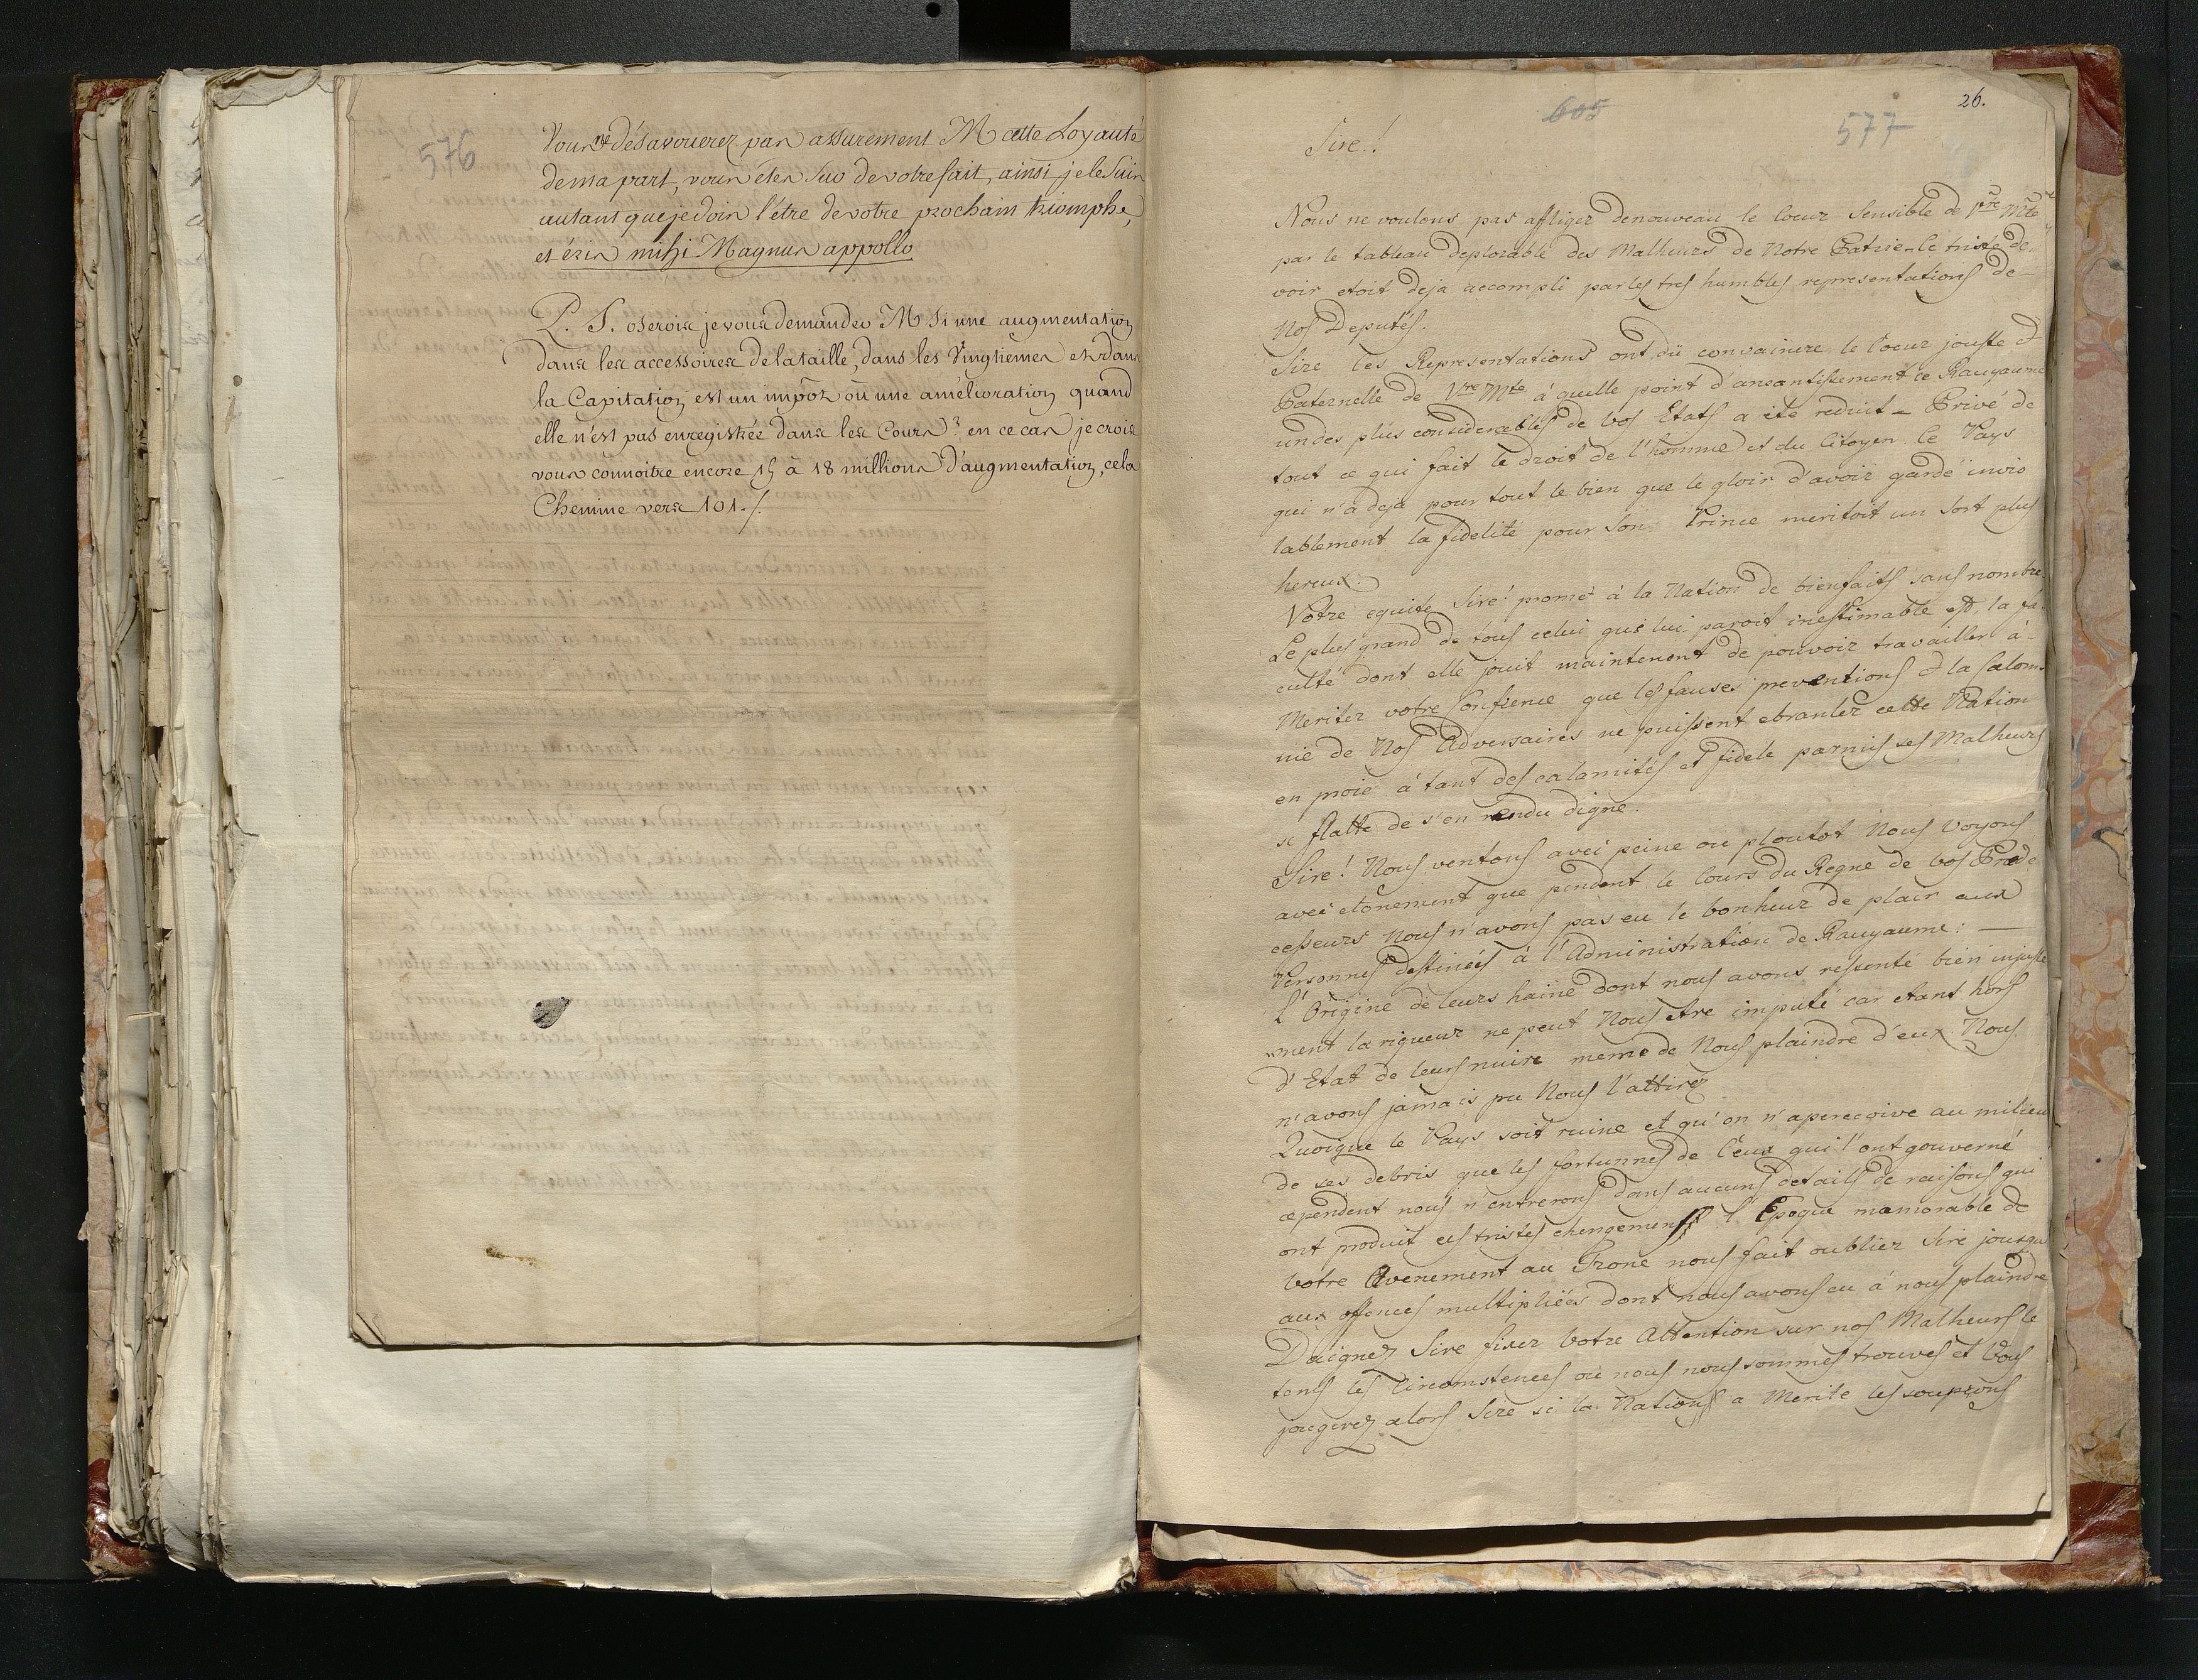 576
Vous ne désavouerez pas assurément M cette Loyauté
de ma part, vous êtes sur de votre fait, ainsi je le suis
autant que je dois l'être de votre prochain triomphe,
et éris mihi Magnus appollo
P. S. oserois je vous demander M si une augmentation
dans les accessoires de la taille, dans les Vingtiemes et dans
la Capitation est un impôt où une amélioration quand
elle n'est pas enregistrée dans les Cours? en ce cas je crois
vous connoitre encore 15 à 18 millions d'augmentation, cela
Chemine vers 101./.
605
577
26.
Sire!
Nous ne voulons pas affliger denouveau le Coeur Sensible de Vre Mté
par le tableau deplorable des Malheurs de Notre Patrie. Ce triste de-
voir etoit deja accompli par les tres humbles representations de
Nos Deputés.
Sire les Representations ont dü convaincre le Coeur jouste et
Paternelle de Vre Mte à quelle point d'aneantissement ce Rauyaume
un des plus considerables de vos Etats a été reduit - Privé de
tout ce qui fait le droit de l'homme et du Citoyen. Ce Pays
qui n'a deja pour tout le bien que le gloir d'avoir gardé invio
lablement la fidelité pour Son Prince meritoit un Sort plus
hereux.
Votre equite Sire! promet à la Nation de bienfaits sans nombre
Le plus grand de tous celui qui lui paroit inestimable est, la fa-
culté dont elle jouit maintenent de pouvoir travailler à-
Meriter votre Confience que les fauses preventions et la Calom-
nie de Nos Adversaires ne puissent ebranler cette Nation
en proie à tant des calamités et fidele parmis ses Malheurs
se flatte de s'en rendu digne.
Sire! Nous sentons avec peine ou ploutot Nous Voyons
avec etonement que pendent le Cours du Regne de vos Præde
cesseurs Nous n'avons pas eu le bonheur de plair aux
Personnes destinées à l'Administration de Rauyaume:
l'Origine de leurs haine dont nous avons ressenté bien injuste
ment la rigueur ne peut Nous etre imputé car etant hors
d'Etat de leurs nuire meme de Nous plaindre d'eux Nous
n'avons jamais pu Nous l'attirez
Quoique le Pays soit ruine et qu'on n'aperecoive au milieu
de ses debris que les fortunnes de Ceux qui l'ont gouverné
cependent nous n'entrerons dans aucuns details de raisons qui
ont produit ces tristes chengemens l'Epoque memorable de
votre Avenement au Trone nous fait oublier Sire jousqu
aux offences multipliées dont nous avons eu à nous plaindre
Daignez Sire fixer votre Attention sur nos Malheurs le
tems les Circomstences où nous nous sommes trouvés et Vous
jougerez alors Sire si la Nation a Merite les soupcons